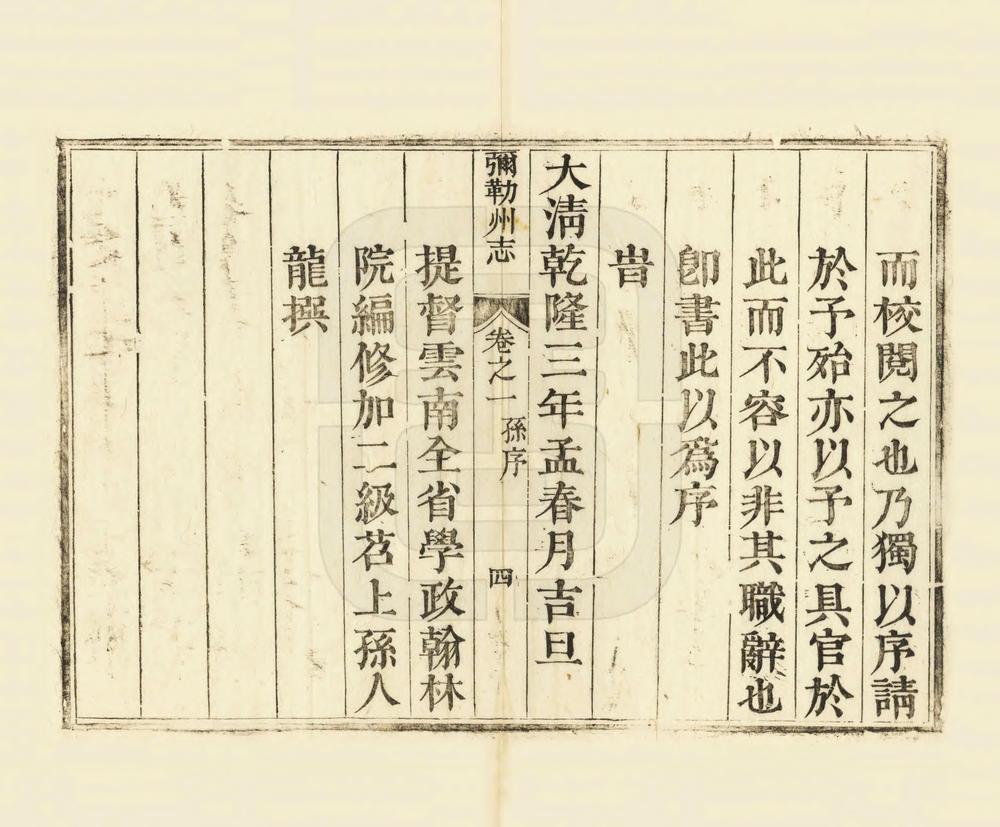 而校閱之也乃獨以序請
於予殆亦以予之具官於
此而不容以非其職辭也
卽書此以爲序
旹
大淸乾隆三年孟春月吉旦
彌勒州志 卷之一 孫序 四
提督雲南全省學政翰林
院編修加二級苕上孫人
龍撰